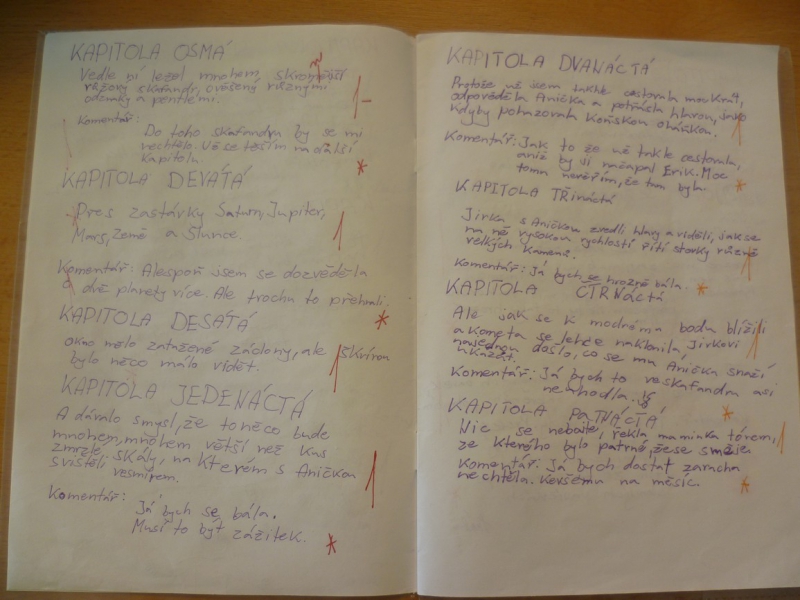 KAPITOLA OSMÁ
Vedle ní ležel mnohem, skromnější
růžový skafandr, ověšený různými
odznaky a pentlemi.
Komentář:
Do toho skafandru by se mi
nechtělo. Už se těším na další
kapitolu.
KAPITOLA DEVÁTÁ
Přes zastávky Saturn, Jupiter,
Mars, Země a Slunce.
Komentář: Alespoň jsem se dozvěděla
o dvě planety více. Ale trochu to přehnali.
KAPITOLA DESÁTÁ
Okno mělo zatažené záclony, ale škvírou
bylo něco málo vidět.
KAPITOLA JEDENÁCTÁ
A dávalo smysl, že to něco bude
mnohem, mnohem větší než kus
zmrzlé skály, na kterém s Aničkou
svištěli vesmírem.
Komentář:
Já bych se bála.
Musí to být zážitek.
KAPITOLA DVANÁCTÁ
Protože už jsem takhle cestovala moc krát,
odpověděla Anička a potřásla hlavou, jako
kdyby pohazovala koňskou oháňkou.
Komentář: Jak to že už takle cestovala,
aniž by ji načapal Erik. Moc
tomu nevěřím, že tam byla.
KAPITOLA TŘINÁCTÁ
Jirka s Aničkou zvedli hlavy a viděli, jak se
na ně vysokou rychlostí řítí stovky různě
velkých kamenů.
Komentář: Já bych se hrozně bála.
KAPITOLA ČTRNÁCTÁ
Ale jak se k modrému bodu blížili
a kometa se lehce naklonila, Jirkovi
najednou došlo, co se mu Anička snaží
ukázat.
Komentář: Já bych to ve skafandru asi
neuhodla.
KAPITOLA PATNÁCTÁ
Nic se nebojte, řekla maminka tónem,
ze kterého bylo patrné, že se směje
Komentář: Já bych dostat zaracha
nechtěla. Kevšemu na měsíc.